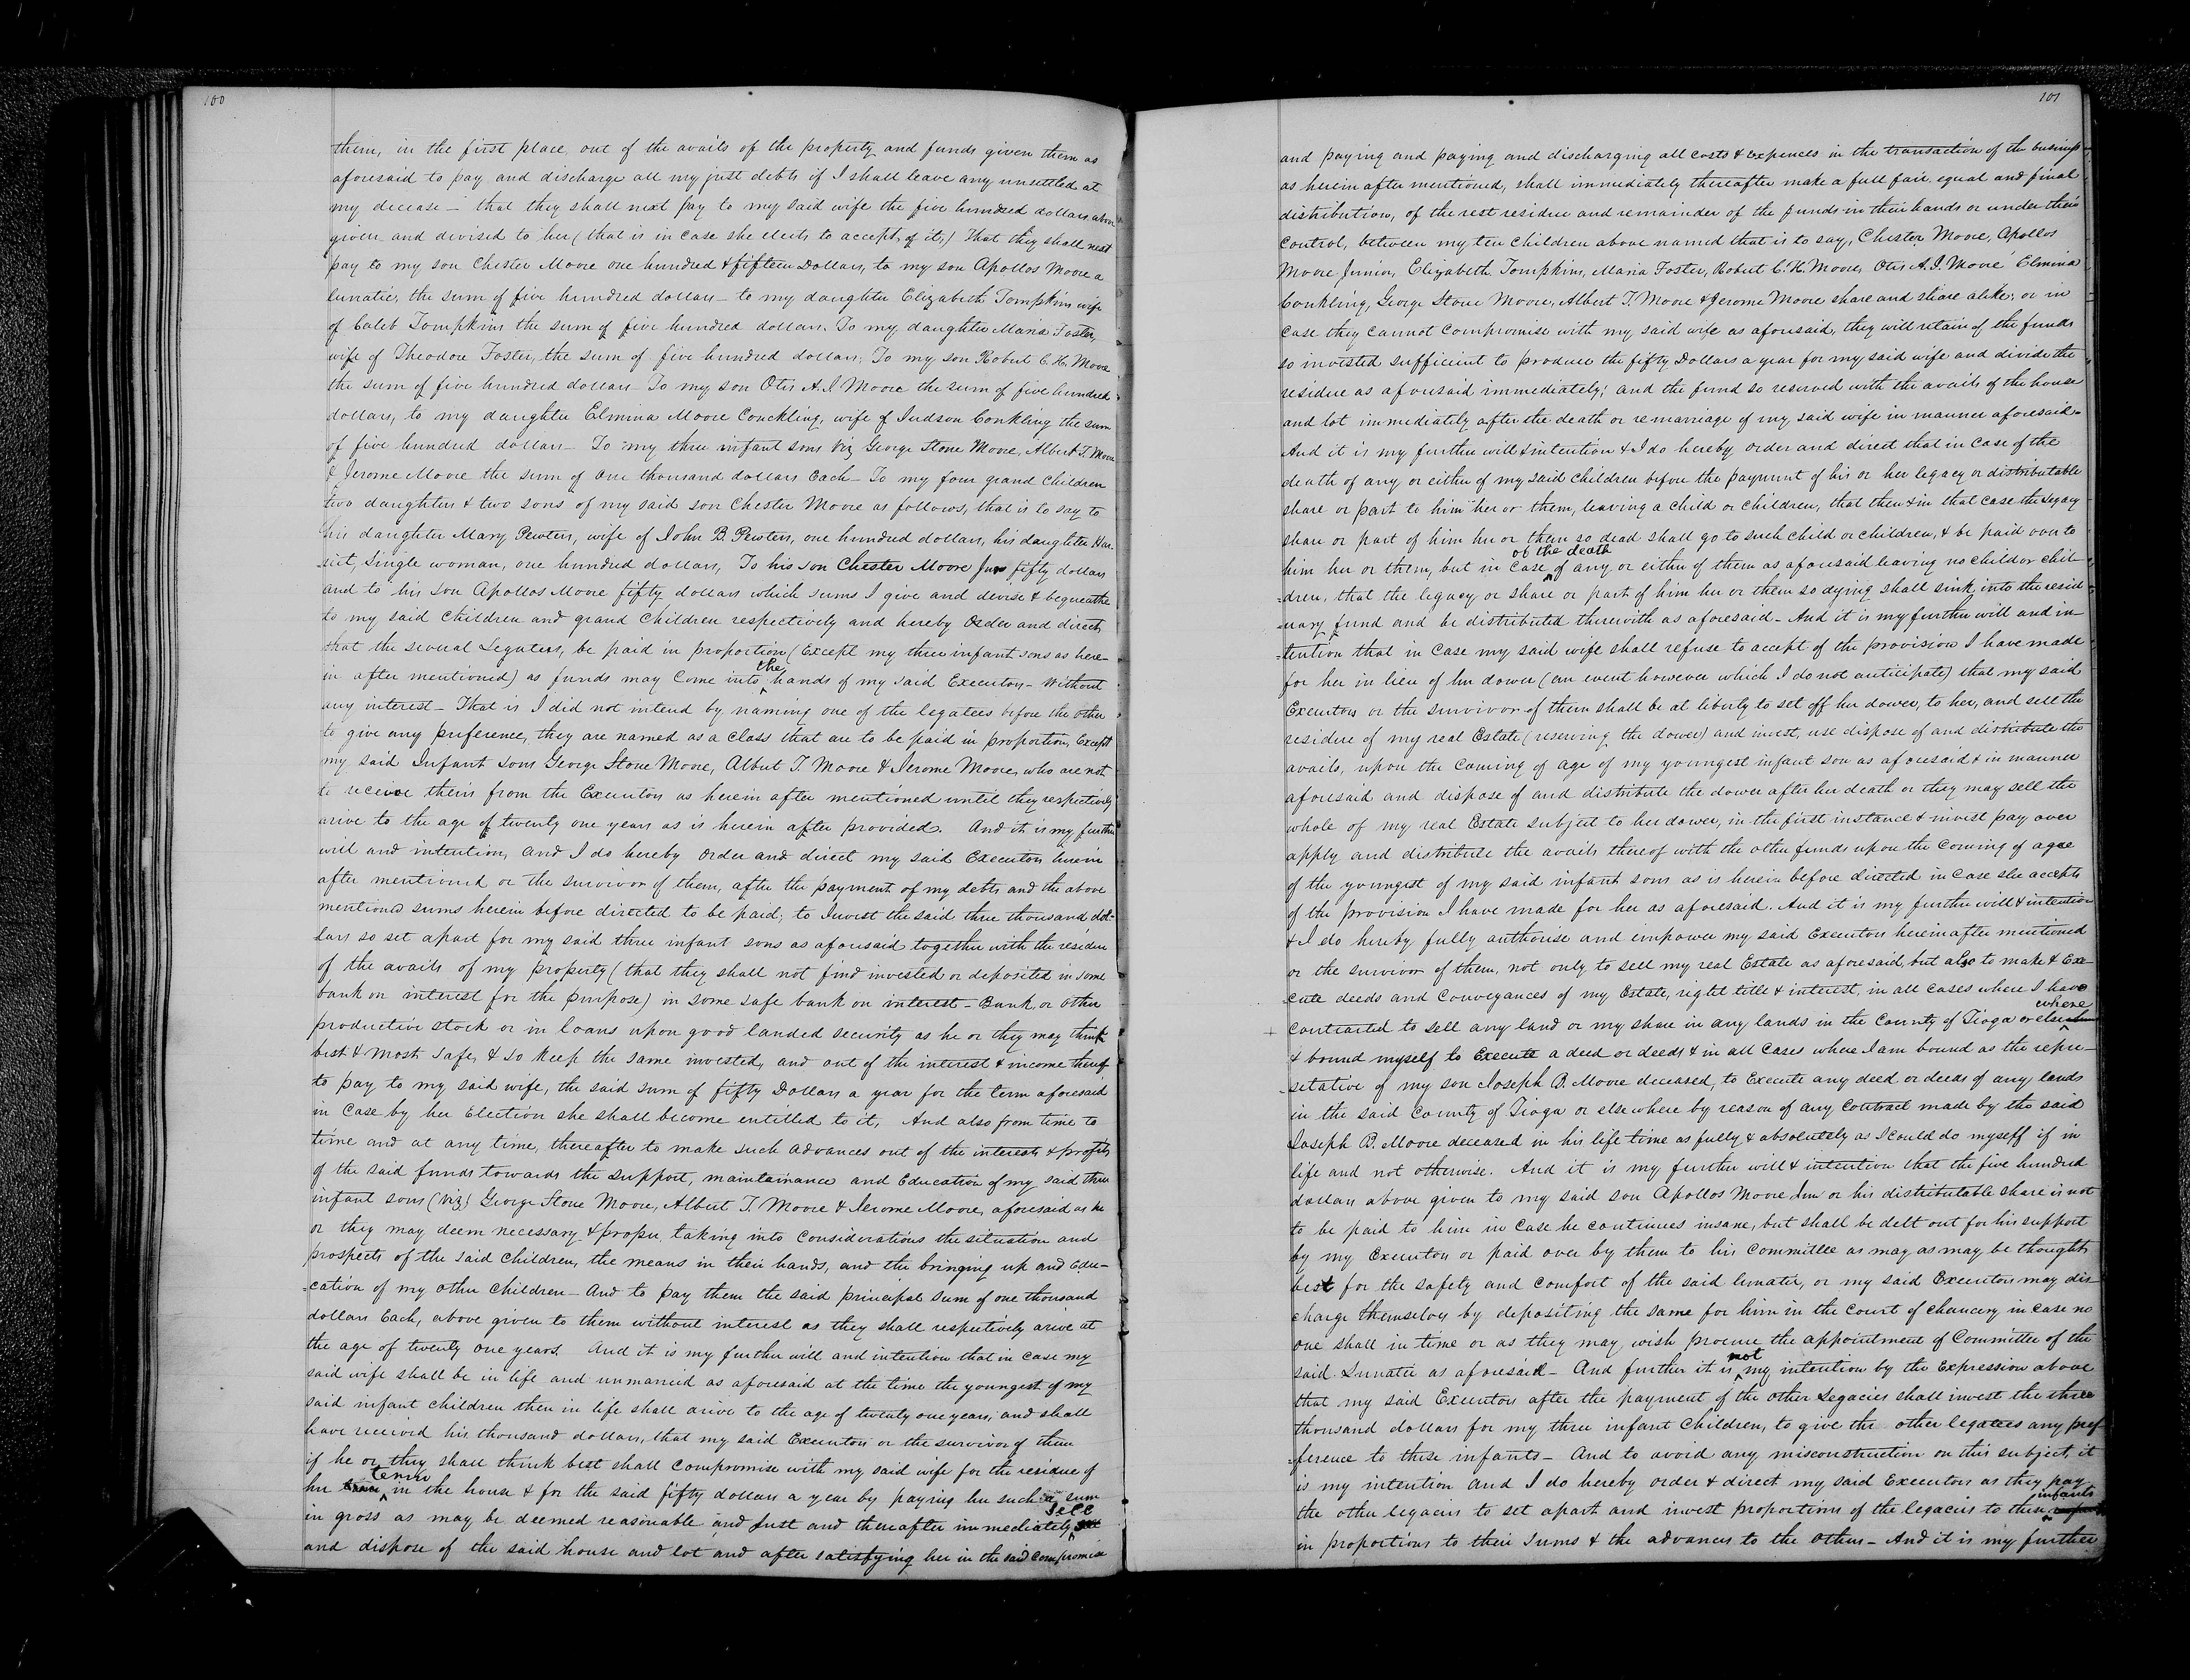 100
them, in the first place out of the avails of the property and funds given them as
aforesaid to pay and discharge all my just debts if I shall leave any unsettled at
my decease – that they shall next pay to my said wife the five hundred dollars above
given and devised to her (that is in case she elects to accept of it,) That they shall next
pay to my son Chester Moore one hundred & fifteen Dollars, to my son Apollos Moore a
lunatic, the sum of five hundred dollars – to my daughter Elizabeth Tompkins wife
of Caleb Tompkins the sum of five hundred dollars. To my daughter Maria Foster,
wife of Theodore Foster, the sum of five hundred dollars, To my son Robert C. H. Moore
the sum of five hundred dollars – To my son Otis A. I. Moore the sum of five hundred
dollars, to my daughter Elmina Moore Conckling, wife of Judson Conkling the sum
of five hundred dollars – To my three infant sons viz George Stone Moore, Albert T. Moore
& Jerome Moore the sum of one thousand dollars Each – To my four grand Children
two daughters & two sons of my said son Chester Moore as follows, that is to say to
his daughter Mary Pewters, wife of John B. Pewters, one hundred dollars, his daughter Har-
riet, Single woman, one hundred dollars, To his son Chester Moore Junr fifty dollars
and to his son Apollos Moore fifty dollars which sums I give and devise & bequeathe
to my said Children and grand Children respectively and hereby Order and direct
that the several Legatees, be paid in proportion (Except my three infant sons as here-
in after mentioned) as funds may Come into the hands of my said Executors – Without
any interest – That is I did not intend by naming one of the legatees before the other
to give any preference, they are named as a Class that are to be paid in proportion, Except
my said Infant sons George Stone Moore, Albert T. Moore & Jerome Moore, who are not
to receive theirs from the Executors as herein after mentioned until they respectively
arive to the age of twenty one years as is herein after provided. And it is my further
will and intention, and I do hereby Order and direct my said Executors herein
after mentioned or the survivor of them, after the payment of my debts and the above
mentioned sums herein before directed to be paid, to Invest the said three thousand dol-
lars so set apart for my said three infant sons as aforesaid together with the residue
of the avails of my property (that they shall not find invested or deposited in some
bank on interest for the purpose) in some safe bank on interest – Bank or other
productive stock or in loans upon good landed security as he or they may think
best & most safe, & so keep the same invested, and out of the interest & income thereof
to pay to my said wife, the said sum of fifty Dollars a year for the term aforesaid
in Case by her Election she shall become entitled to it, And also from time to
time and at any time, thereafter to make such advances out of the interests & profits
of the said funds towards the support, maintainance and Education of my said three
infant sons (viz) George Stone Moore, Albert T. Moore & Jerome Moore, aforesaid as he
or they may deem necessary & proper, taking into Considerations the situation and
prospects of the said Children, the means in their hands, and the bringing up and Edu-
cation of my other Children – And to pay them the said principal sum of one thousand
dollars Each, above given to them without interest as they shall respectively arive at
the age of twenty one years. And it is my further will and intention that in case my
said wife shall be in life and unmarried as aforesaid at the time the youngest of my
said infant children then in life shall arive to the age of twenty one years, and shall
have received his thousand dollars, that my said Executors or the survivor of them
if he or they shall think best shall Compromise with my said wife for the residue of
her term in the house & for the said fifty dollars a year by paying her such a sum
in gross as may be deemed reasonable and Just and thereafter immediately sell
and dispose of the said house and lot and after satisfying her in the said Compromise
101
and paying and paying and discharging all costs & expences in the transaction of the business
as herein after mentioned, shall immediately thereafter make a full fair equal and final
distribution, of the rest residue and remainder of the funds in their hands or under their
Control, between my ten Children above named that is to say, Chester Moore, Apollos
Moore Junior, Elizabeth Tompkins, Maria Foster, Robert C. H. Moore, Otis A. I. Moore Elmina
Conkling, George Stone Moore, Albert T. Moore & Jerome Moore share and share alike; or in
Case they Cannot Compromise with my said wife as aforesaid, they will retain of the funds
so invested sufficient to produce the fifty Dollars a year for my said wife and divide the
residue as aforesaid immediately; and the fund so reserved with the avails of the house
and lot immediately after the death or remarriage of my said wife in manner aforesaid –
And it is my further will & intention & I do hereby order and direct that in Case of the
death of any or either of my said Children before the payment of his or her legacy or distributable
share or part to him her or them, leaving a Child or Children, that then & in that Case the Legacy
share or part of him her or them so dead shall go to such Child or Children, & be paid over to
him her or them, but in Case of the death of any or either of them as aforesaid leaving no Child or Chil-
dren, that the legacy or share or part of him her or them so dying shall sink into the resid
uary fund and be distributed therewith as aforesaid – And it is my further will and in-
tention that in Case my said wife shall refuse to accept of the provision I have made
for her in lieu of her dower (an event however which I do not anticipate) that my said
Executors or the survivor of them shall be at liberty to set off her dower, to her, and sell the
residue of my real Estate (reserving the dower) and invest, use dispose of and distribute the
avails, upon the Coming of age of my youngest infant son as aforesaid & in manner
aforesaid and dispose of and distribute the dower after her death or they may sell the
whole of my real Estate subject to her dower, in the first instance & invest pay over
apply and distribute the avails thereof with the other funds upon the Coming of agee
of the youngest of my said infant sons as is herein before directed in Case she accepts
of the provision I have made for her as aforesaid. And it is my further will & intention
& I do hereby fully authorise and empower my said Executors hereinafter mentioned
or the survivor of them, not only to sell my real Estate as aforesaid, but also to make & Exe-
cute deeds and Conveyances of my Estate, right title & interest, in all cases where I have
Contracted to sell any land or my share in any lands in the County of Tioga or else where
& bound myself to Execute a deed or deeds & in all Cases where I am bound as the repre-
setative of my son Joseph B. Moore deceased, to Execute any deed or deeds of any lands
in the said County of Tioga or elsewhere by reason of any Contract made by the said
Joseph B. Moore deceased in his life time as fully & absolutely as I could do myself if in
life and not otherwise. And it is my further will & intention that the five hundred
dollars above given to my said son Apollos Moore Junr or his distributable share is not
to be paid to him in Case he continues insane, but shall be delt out for his support
by my Executors or paid over by them to his Committee as may as may be thought
best for the safety and Comfort of the said lunatic, or my said Executors may dis
charge themselves by depositing the same for him in the Court of chancery in case no
one shall in time or as they may wish procure the appointment of Committee of the
said Lunatic as aforesaid – And further it is not my intention by the Expression above
that my said Executors after the payment of the other Legacies shall invest the three
thousand dollars for my three infant Children, to give the other legatees any pref
ference to these infants – And to avoid any misconstruction on this subject, it
is my intention and I do hereby order & direct my said Executors as they pay
the other legacies to set apart and invest proportions of the legacies to these infants
in proportions to their sums & the advances to the others – And it is my further